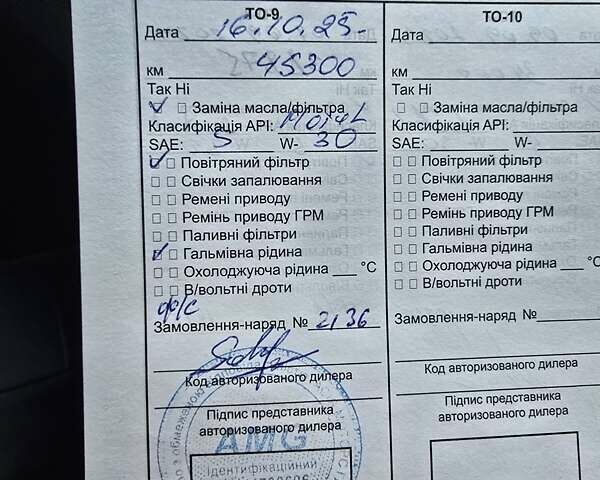 ТО-9
Дата 16.10.25.
км 45300
Так Ні
Заміна масла/фільтра
Класифікація API: Motul
SAE: 5 W- 30
Повітряний фільтр
Свічки запалювання
Ремені приводу
Ремінь приводу ГРМ
Паливні фільтри
Гальмівна рідина
Охолоджуюча рідина ___ °C
В/вольтні дроти
Замовлення-наряд № 2136
Код авторизованого дилера
Підпис представника
авторизованого дилера
AMG
Ідентифікаційний
ТО-10
Дата
км
Так Ні
Заміна масла/фільтра
Класифікація API:
SAE: W-
Повітряний фільтр
Свічки запалювання
Ремені приводу
Ремінь приводу ГРМ
Паливні фільтри
Гальмівна рідина
Охолоджуюча рідина ___ °C
В/вольтні дроти
Замовлення-наряд №
Код авторизованого дилера
Підпис представника
авторизованого дилера